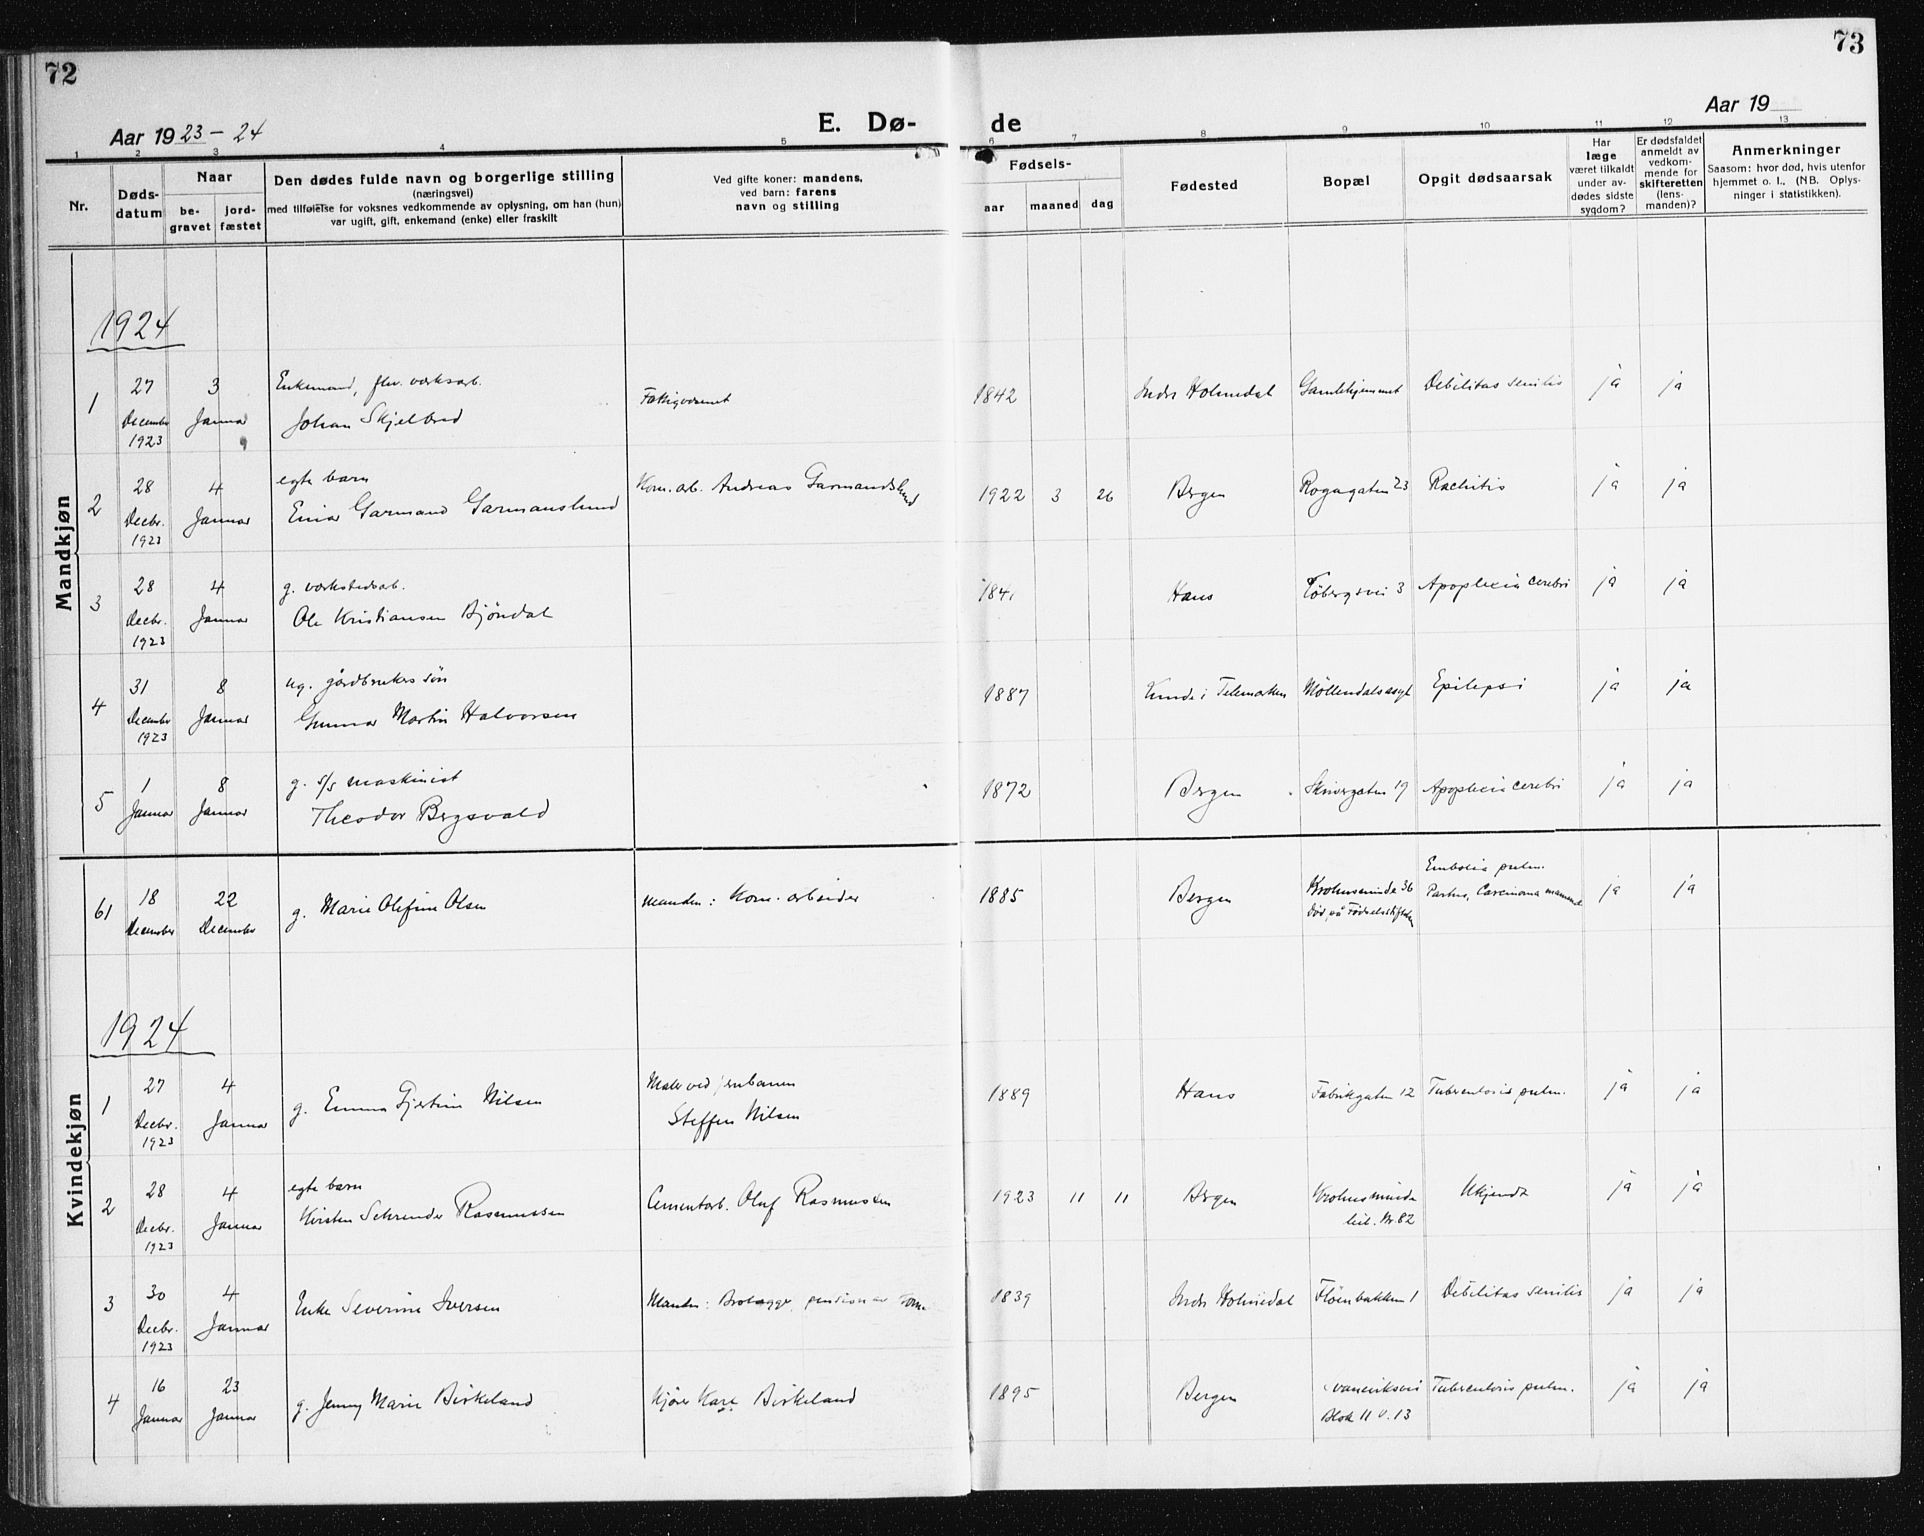 72
73
Aar 1923-24
E. Dø-
de
Aar 19
1
2
3
4
5
6
7
8
9
10
11
12
13
Nr.
Døds-
datum
Naar
be-
gravet
jord-
fæstet
Den dødes fulde navn og borgerlige stilling
(næringsvei)
med tilføielse for voksnes vedkommende av oplysning, om han (hun)
var ugift, gift, enkemand (enke) eller fraskilt
Ved gifte koner: mandens,
ved barn: farens
navn og stilling
Fødsels-
aar
maaned
dag
Fødested
Bopæl
Opgit dødsaarsak
Har
læge
været tilkaldt
under av-
dødes sidste
sygdom?
Er dødsfaldet
anmeldt av
vedkom-
mende for
skifteretten
(lens-
manden)?
Anmerkninger
Saasom: hvor død, hvis utenfor
hjemmet o. l., (NB. Oplys-
ninger i statistikken).
Mandkjøn
1924
1 27 December 1923 3 Januar Enkemand, fhv. verksarb. Johan Skjelbred Fattigvæsenet 1842 Indre Holmedal Gamlehjemmet Debilitas senilis ja ja
2 28 Decbr. 1923 4 Januar egte barn Einar Garmand Garmanslund Kom. arb. Andreas Garmandslund 1922 3 26 Bergen 23 Rachitis ja ja
3 28 Decbr. 1923 4 Januar g. verkstedsarb. Ole Kristiansen Bjöndal 184 Haus 3 Apoplexia cerebri ja ja
4 31 December 1923 8 Januar ug. gårdbrukers sön Gunnar Martin Halvorsen 1887 i Telemarken Möllendalsasyl Epilepsi ja ja
5 1 Januar 8 Januar g. s/s maskinist Theodor Bergsvald 1872 Bergen Skivergaten 19 Apoplexia cerebri ja ja
Kvindekjøn
61 18 December 22 December g. Marie Olefine Olsen Manden: Kom. arbeider 1885 Bergen Krohnsminde 36 död på Födselsstiftelsen Embolia pulm. Partus, Carcinoma mammae ja ja
1924
1 27 Decbr. 1923 4 Januar g. Emma Gjertine Nilsen Maler ved jernbanen Steffen Nilsen 1889 Haus Fabrikgaten 12 Tuberculosis pulm. ja ja
2 28 Decbr. 1923 4 Januar egte barn Kirsten Schrender Rasmussen Cementarb. Oluf Rasmussen 1923 11 11 Bergen Krohnsminde leil. Nr. 82 Ukjendt ja ja
3 30 Decbr. 1923 4 Januar Enke Severine Iversen Manden: Brolægger, 1839 Indre Holmedal Flöienbakken 1 Debilitas senilis ja ja
4 16 Januar 23 Januar g. Jenny Marie Birkeland Kjörer Kare Birkeland 1895 Bergen Blok 11 v. 13 Tuberculosis pulm. ja ja